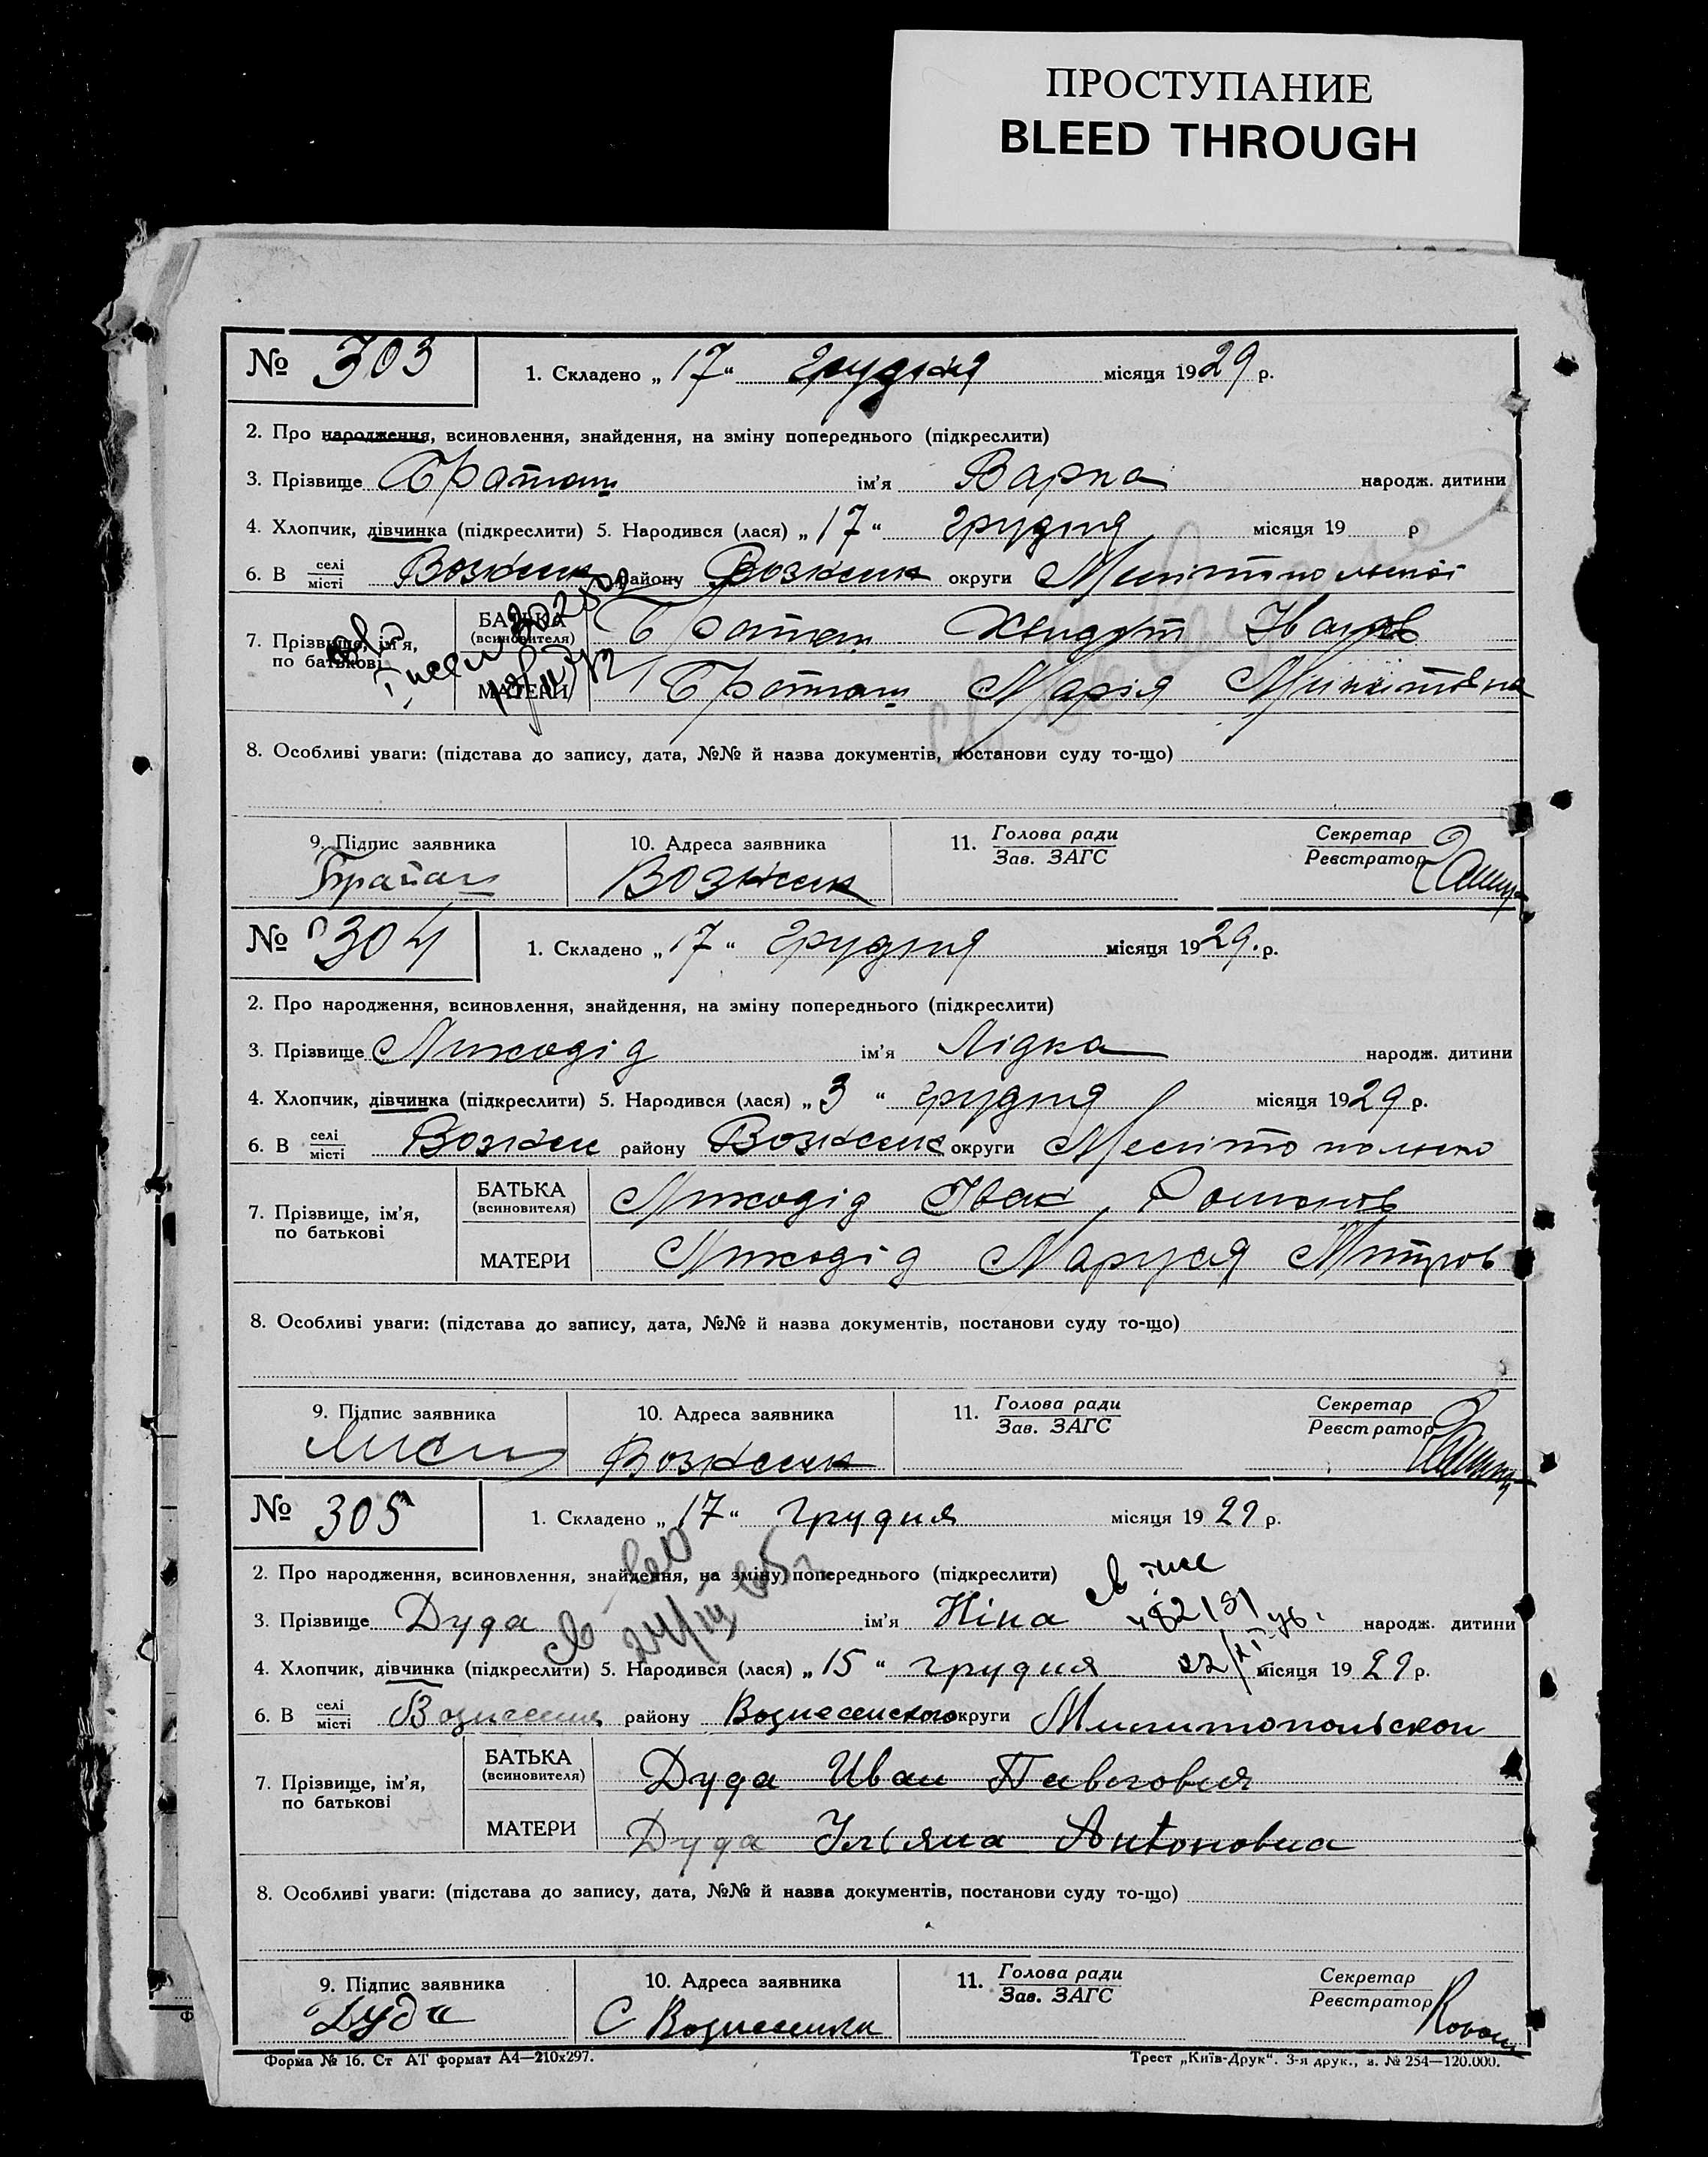 ПРОСТУПАНИЕ
BLEED THROUGH
№ 303
1. Складено „17“ грудня місяця 1929 р.
2. Про народження, всиновлення, знайдення, на зміну попереднього (підкреслити)
3. Прізвище Браташ ім'я Варка народж. дитини
4. Хлопчик, дівчинка (підкреслити) 5. Народився (лася) „17“ грудня місяця 19 р
6. В селі місті Вознесен району Вознесен округи Мелітопольскої
7. Прізвище, ім'я, по батькові
БАТЬКА (всиновителя) Браташ Іванов
МАТЕРИ Браташ Марія Микитівна
8. Особливі уваги: (підстава до запису, дата, №№ й назва документів, постанови суду то-що)
9. Підпис заявника 10. Адреса заявника 11. Голова ради Зав. ЗАГС Секретар Реєстратор
Браташ Вознесен
№ 304
1. Складено „17“ грудня місяця 1929. р.
2. Про народження, всиновлення, знайдення, на зміну попереднього (підкреслити)
3. Прізвище Лиходід ім'я Лідка народж. дитини
4. Хлопчик, дівчинка (підкреслити) 5. Народився (лася) „3“ грудня місяця 1929 р.
6. В селі місті Вознесен району Вознесен округи Мелітополько
7. Прізвище, ім'я, по батькові
БАТЬКА (всиновителя) Лиходід Іван
МАТЕРИ Лиходід Маруся Митров
8. Особливі уваги: (підстава до запису, дата, №№ й назва документів, постанови суду то-що)
9. Підпис заявника 10. Адреса заявника 11. Голова ради Зав. ЗАГС Секретар Реєстратор
Вознесен
№ 305
1. Складено „17“ грудня місяця 1929 р.
2. Про народження, всиновлення, знайдення, на зміну попереднього (підкреслити)
3. Прізвище Дуда ім'я Ніна народж. дитини
4. Хлопчик, дівчинка (підкреслити) 5. Народився (лася) „15“ грудня місяця 1929 р.
6. В селі місті Вознесени району Вознесенского округи Милитопольскои
7. Прізвище, ім'я, по батькові
БАТЬКА (всиновителя) Дуда Иван
МАТЕРИ Дуда Ульяна Антоновна
8. Особливі уваги: (підстава до запису, дата, №№ й назва документів, постанови суду то-що)
9. Підпис заявника 10. Адреса заявника 11. Голова ради Зав. ЗАГС Секретар Реєстратор
Дуда С Вознесенки
Форма № 16. Ст АТ формат А4—210х297.
Трест „Київ-Друк“. 3-я друк., з. № 254—120.000.